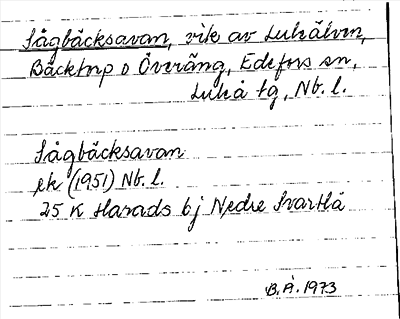 Sågbäcksavan, vik av Luleälven,
Bäcktorp o Överäng, Edefors sn,
Luleå tg, Nb. l.
Sågbäcksavan
ek (1951) Nb. l.
25 K Harads bj Nedre Svartlå
B.Å. 1973